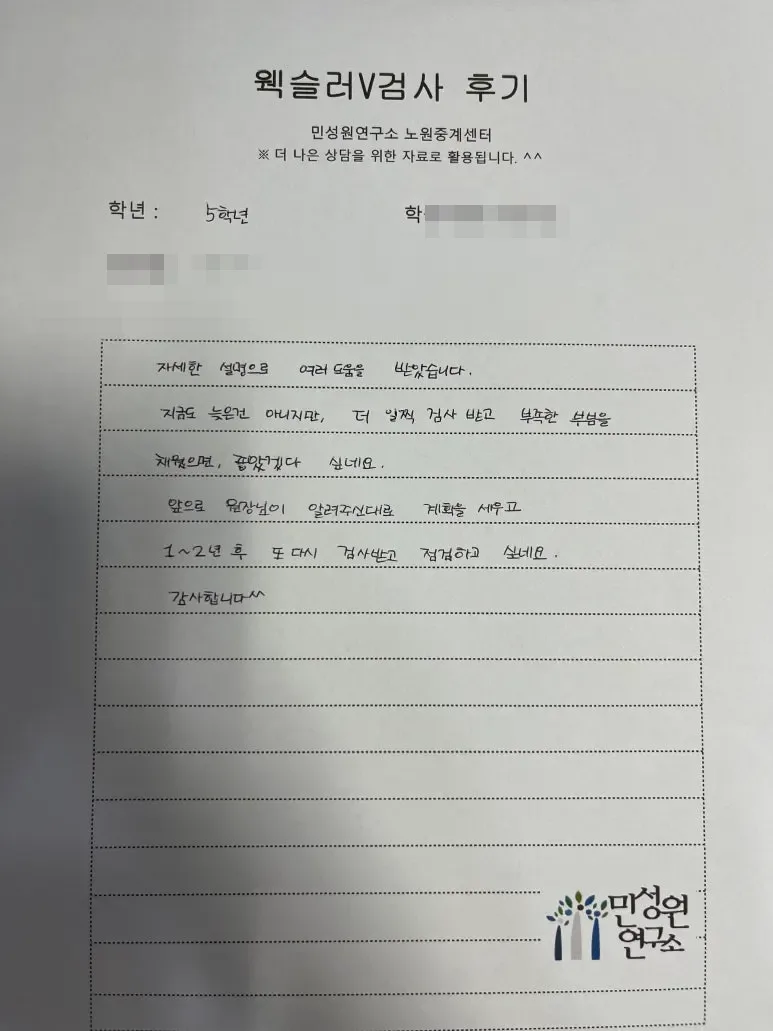 웩슬러V검사 후기
민성원연구소 노원중계센터
※ 더 나은 상담을 위한 자료로 활용됩니다. ^^
학년 : 5학년 학
자세한 설명으로 여러 도움을 받았습니다.
지금도 늦은건 아니지만, 더 일찍 검사 받고 부족한 부분을
채웠으면, 좋았겠다 싶네요.
앞으로 원장님이 알려주신대로 계획을 세우고
1~2년 후 또 다시 검사받고 점검하고 싶네요.
감사합니다^^
민성원
연구소